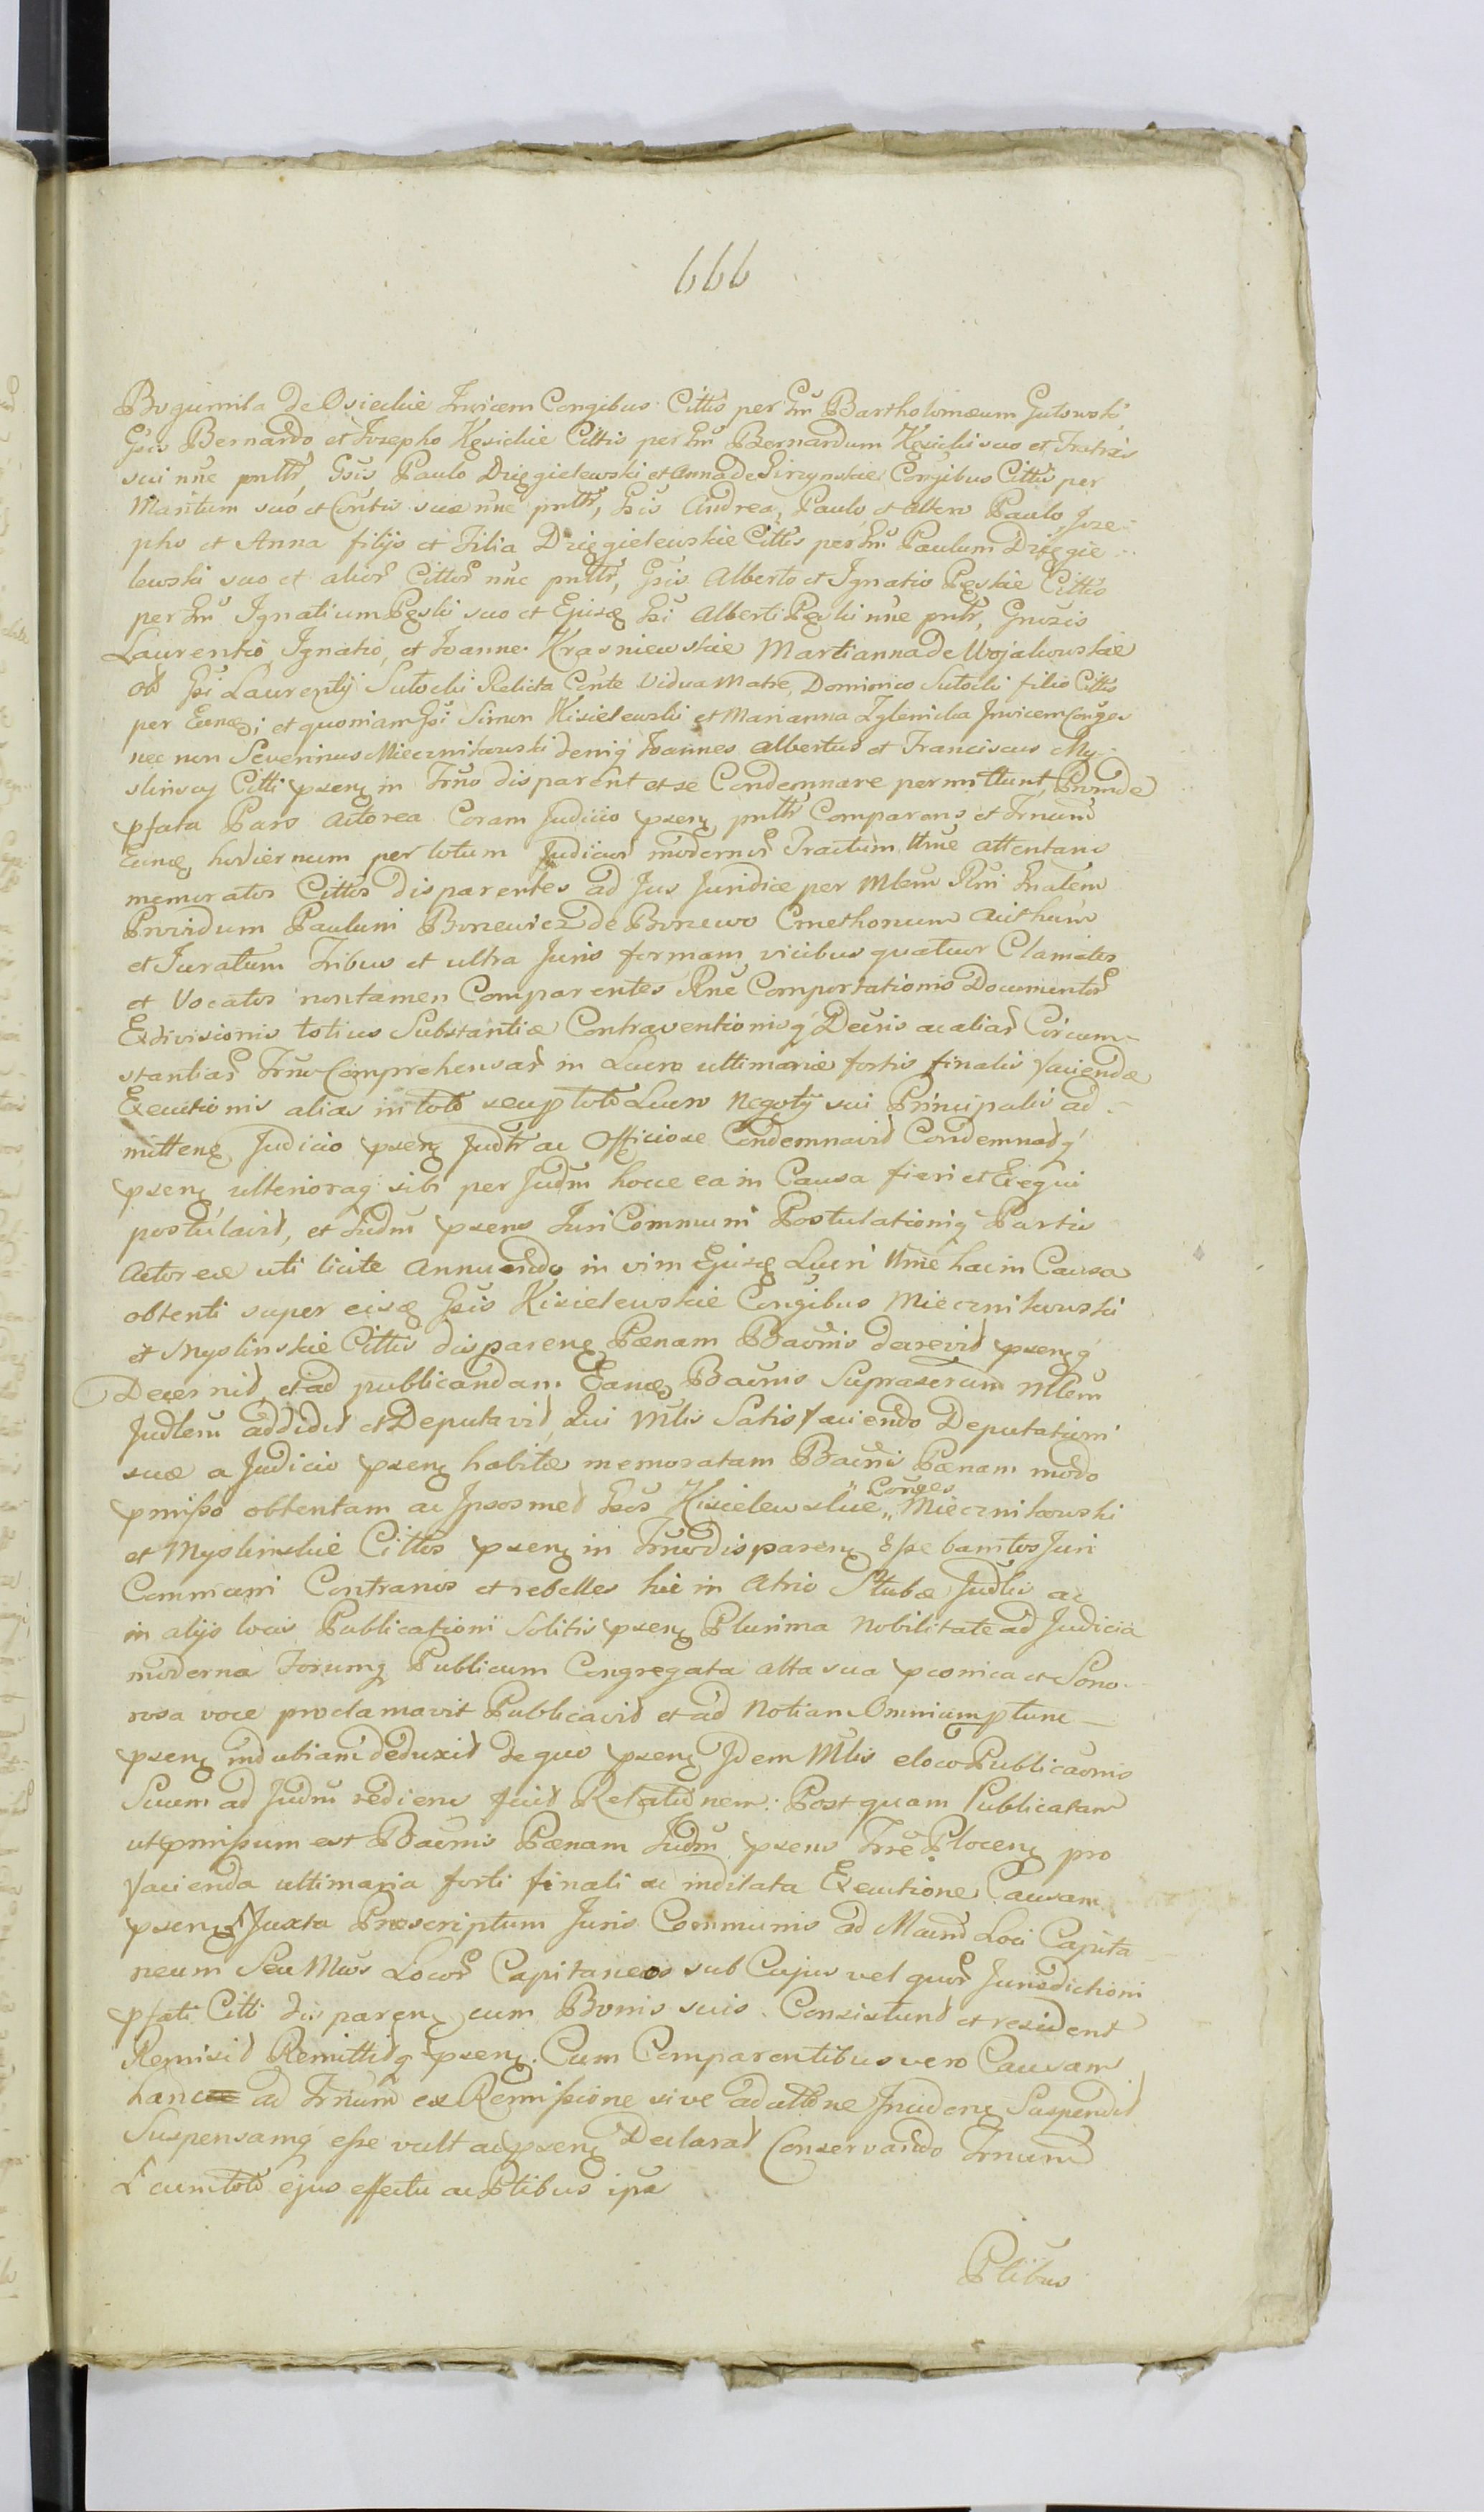 666
Bogumila de Osieckie Invicem Congibus Cittis per Gm Bartholomæum Gutowski,
Gsis Bernardo et Josepho Kęsickie Cittis per Gm Bernardum Kęsicki suo et Fratris
sui nñe pnttr, Gsis Paulo Dzięgielewski et Anna de Conjibus Cittis per
Maritum suo et Contis suæ nñe pnttr, Gsis Andrea, Paulo et altero Paulo Joze-
pho et Anna filijs et Filia Dzięgielewskie Cittis per Gm Paulum Dzięgie-
lewski suo et alior Cittor nñe pnttr, Gsis Alberto et Ignatio Pęskie Cittis
per Gm Ignatium Pęski suo et Ejusq Gsi Alberti Pęski nñe pnttr,
Laurentio, Ignatio, et Joanne Krasniewskie Martianna de Wojakowskie
Gsi Laurentij Sutocki Relicta Conte Vidua Matre, Dominico Sutocki filio Cittis
per et quoniam Gsi Simon Kisielewski et Marianna Zglenicka Invicem Conges
nec non Severinus Miecznikowski deniq Joannes Albertus et Franciscus My-
slinscy Citti psenq in Trno disparent et se Condemnare permittunt, Proinde
pfata Pars Actorea Coram Judicio psenq pnttr Comparens et Trnum
Eunq hodiernum per totum Judicior modernor Tractum ttme attentans
memoratos Cittos disparentes ad Jus Juridice per Mlem Rni Gnalem
Providum Paulum Borzewicz de Borzewo Cmethonum
et Juratum Tribus et ultra Juris formam vicibus quatuor Clamatos
et Vocatos non tamen Comparentes Rne Comportationis Documentor
Exdivisionis totius Substantiæ Contraventionisq Decris ac aliar Circum-
stantiar Trno Comprehensar in Lucro ultimariæ fortis finalis faciendæ
Executionis alias in toto seu p toto Lucro Negotij sui Principalis ad-
mittenq Judicio psenq Judtr ac Officiose Condemnavit Condemnatq
psenq ulterioraq sibi per Judm hocce ea in Causa fieri et Exequi
postulavit, et Judm psens Juri Communi Postulationiq Partis
Actoreæ uti licite Annuendo in vim Ejusq Lucri ttme hac in Causa
obtenti super eisq Gsis Kisielewskie Congibus Miecznikowski
et Myslinskie Cittis disparenq Pœnam Bacnis decrevit psenq q
Decernit, et ad publicandam Eanq Bacnis Suprascrum Mlem
Judlem addidit et Deputavit, Qui Mlis Satisfaciendo Deputationi
suæ a Judicio psenq habitæ memoratam Bacnis Pœnam modo
pmisso obtentam ac Ipsosmet Gsos Kisielewskie Conges Miecznikowski
et Myslinskie Cittos psenq in Trno disparenq Esse banitos Juri
Communi Contrarios et rebelles hic in Atrio Stubæ Judlis ac
in alijs locis Publicationi Solitis psenq Plurima Nobilitate ad Judicia
moderna Forumq Publicum Congregata alta sua pconica et Sono-
rosa voce proclamavit Publicavit et ad Notiam Omnium ptunc
psenq indubiam deduxit de quo psenq Idem Mlis e loco Publicaonis
Suum ad Judm rediens fecit Relationem: Post quam Publicatam
ut pmissum est Bacnis Pœnam Judm psens Trre Plocenq pro
facienda ultimaria forti finali ac indilata Executione Causam
psenq Juxta Præscriptum Juris Communis ad Mcum Loci Capita-
neum Seu Mcos Locor Capitaneos sub Cujus vel quor Jurisdictioni
pfati Citti disparenq cum Bonis suis Consistunt et resident
Remisit Remittitq psenq. Cum Comparentibus vero Causam
hanc ad Trnum ex Remissione sive adcttone Incidenq Suspendit
Suspensamq esse vult ac psenq Declarat Conservando Trnum
cum toto ejus effectu ac Ptibus ipsis
Ptibus